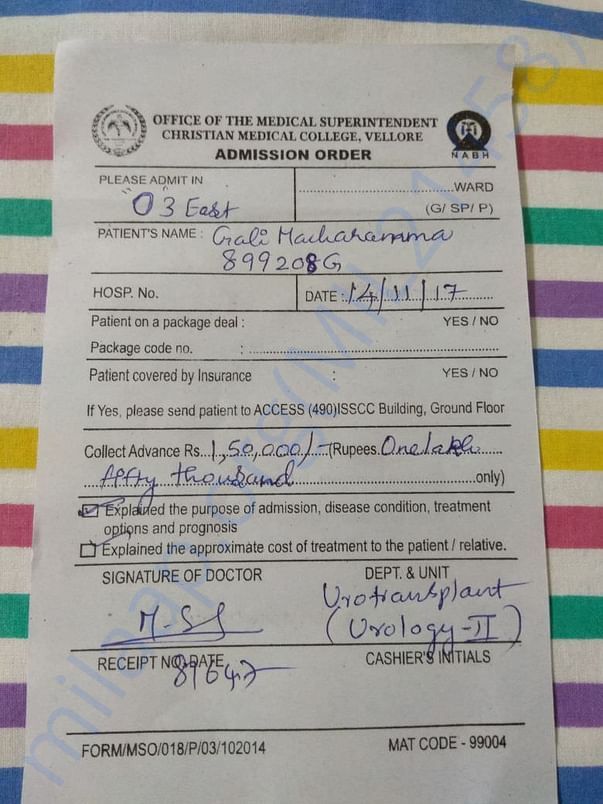 OFFICE OF THE MEDICAL SUPERINTENDENT
CHRISTIAN MEDICAL COLLEGE, VELLORE
ADMISSION ORDER
NABH
PLEASE ADMIT IN
"O3 East
..........WARD
(G/ SP/ P)
PATIENT'S NAME : Gali Macharamma
899208G
HOSP. No.
DATE : 14/11/17
Patient on a package deal : YES / NO
Package code no. : ..........
Patient covered by Insurance : YES / NO
If Yes, please send patient to ACCESS (490)ISSCC Building, Ground Floor
Collect Advance Rs. 1,50,000/- (Rupees One lakh
fifty thousand only)
Explained the purpose of admission, disease condition, treatment
options and prognosis
Explained the approximate cost of treatment to the patient / relative.
SIGNATURE OF DOCTOR
DEPT. & UNIT
Urotransplant
(Urology-II)
RECEIPT NO. DATE
CASHIER'S INITIALS
FORM/MSO/018/P/03/102014
MAT CODE - 99004